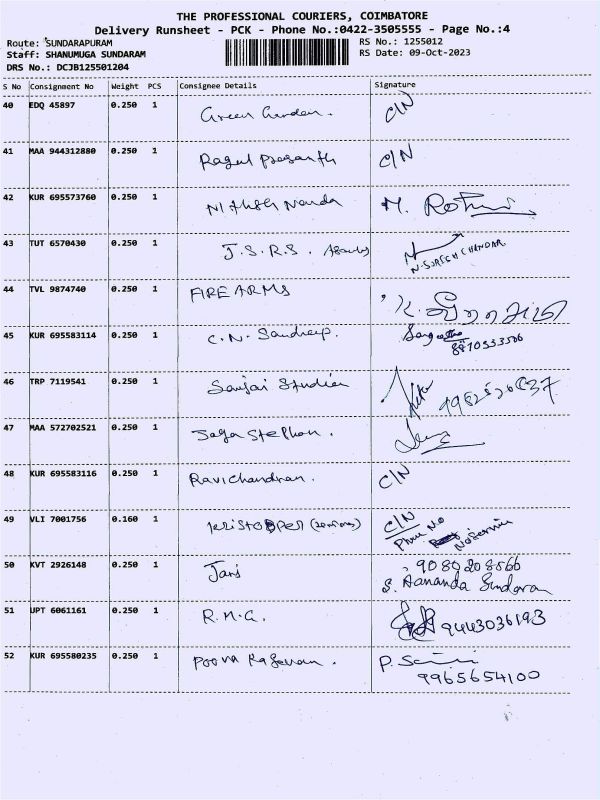 THE PROFESSIONAL COURIERS, COIMBATORE
Delivery Runsheet - PCK - Phone No.:0422-3505555 - Page No.:4
Route: SUNDARAPURAM RS No.: 1255012
Staff: SHANUMUGA SUNDARAM RS Date: 09-Oct-2023
DRS No.: DCJB125501204
S No Consignment No Weight PCS Consignee Details Signature
40 EDQ 45897 0.250 1 Green Garden. C/N
41 MAA 944312880 0.250 1 Ragul Prasanth C/N
42 KUR 695573760 0.250 1 Nithish Nanda M.
43 TUT 6570430 0.250 1 J.S.R.S.
N. SURESH CHANDAR
44 TVL 9874740 0.250 1 FIRE ARMS
45 KUR 695583114 0.250 1 C.N. Sandeep. Sangeetha
8870533506
46 TRP 7119541 0.250 1 Sanjai Studion
47 MAA 572702521 0.250 1 Jaga Stephan.
48 KUR 695583116 0.250 1 Ravichandran. C/N
49 VLI 7001756 0.160 1 C/N
Phone No
No Service
50 KVT 2926148 0.250 1 9080208566
S. Aananda Sundaran
51 UPT 6061161 0.250 1 R.M.G. 9443036193
52 KUR 695580235 0.250 1 Poova Ragavan. P.
9965654100